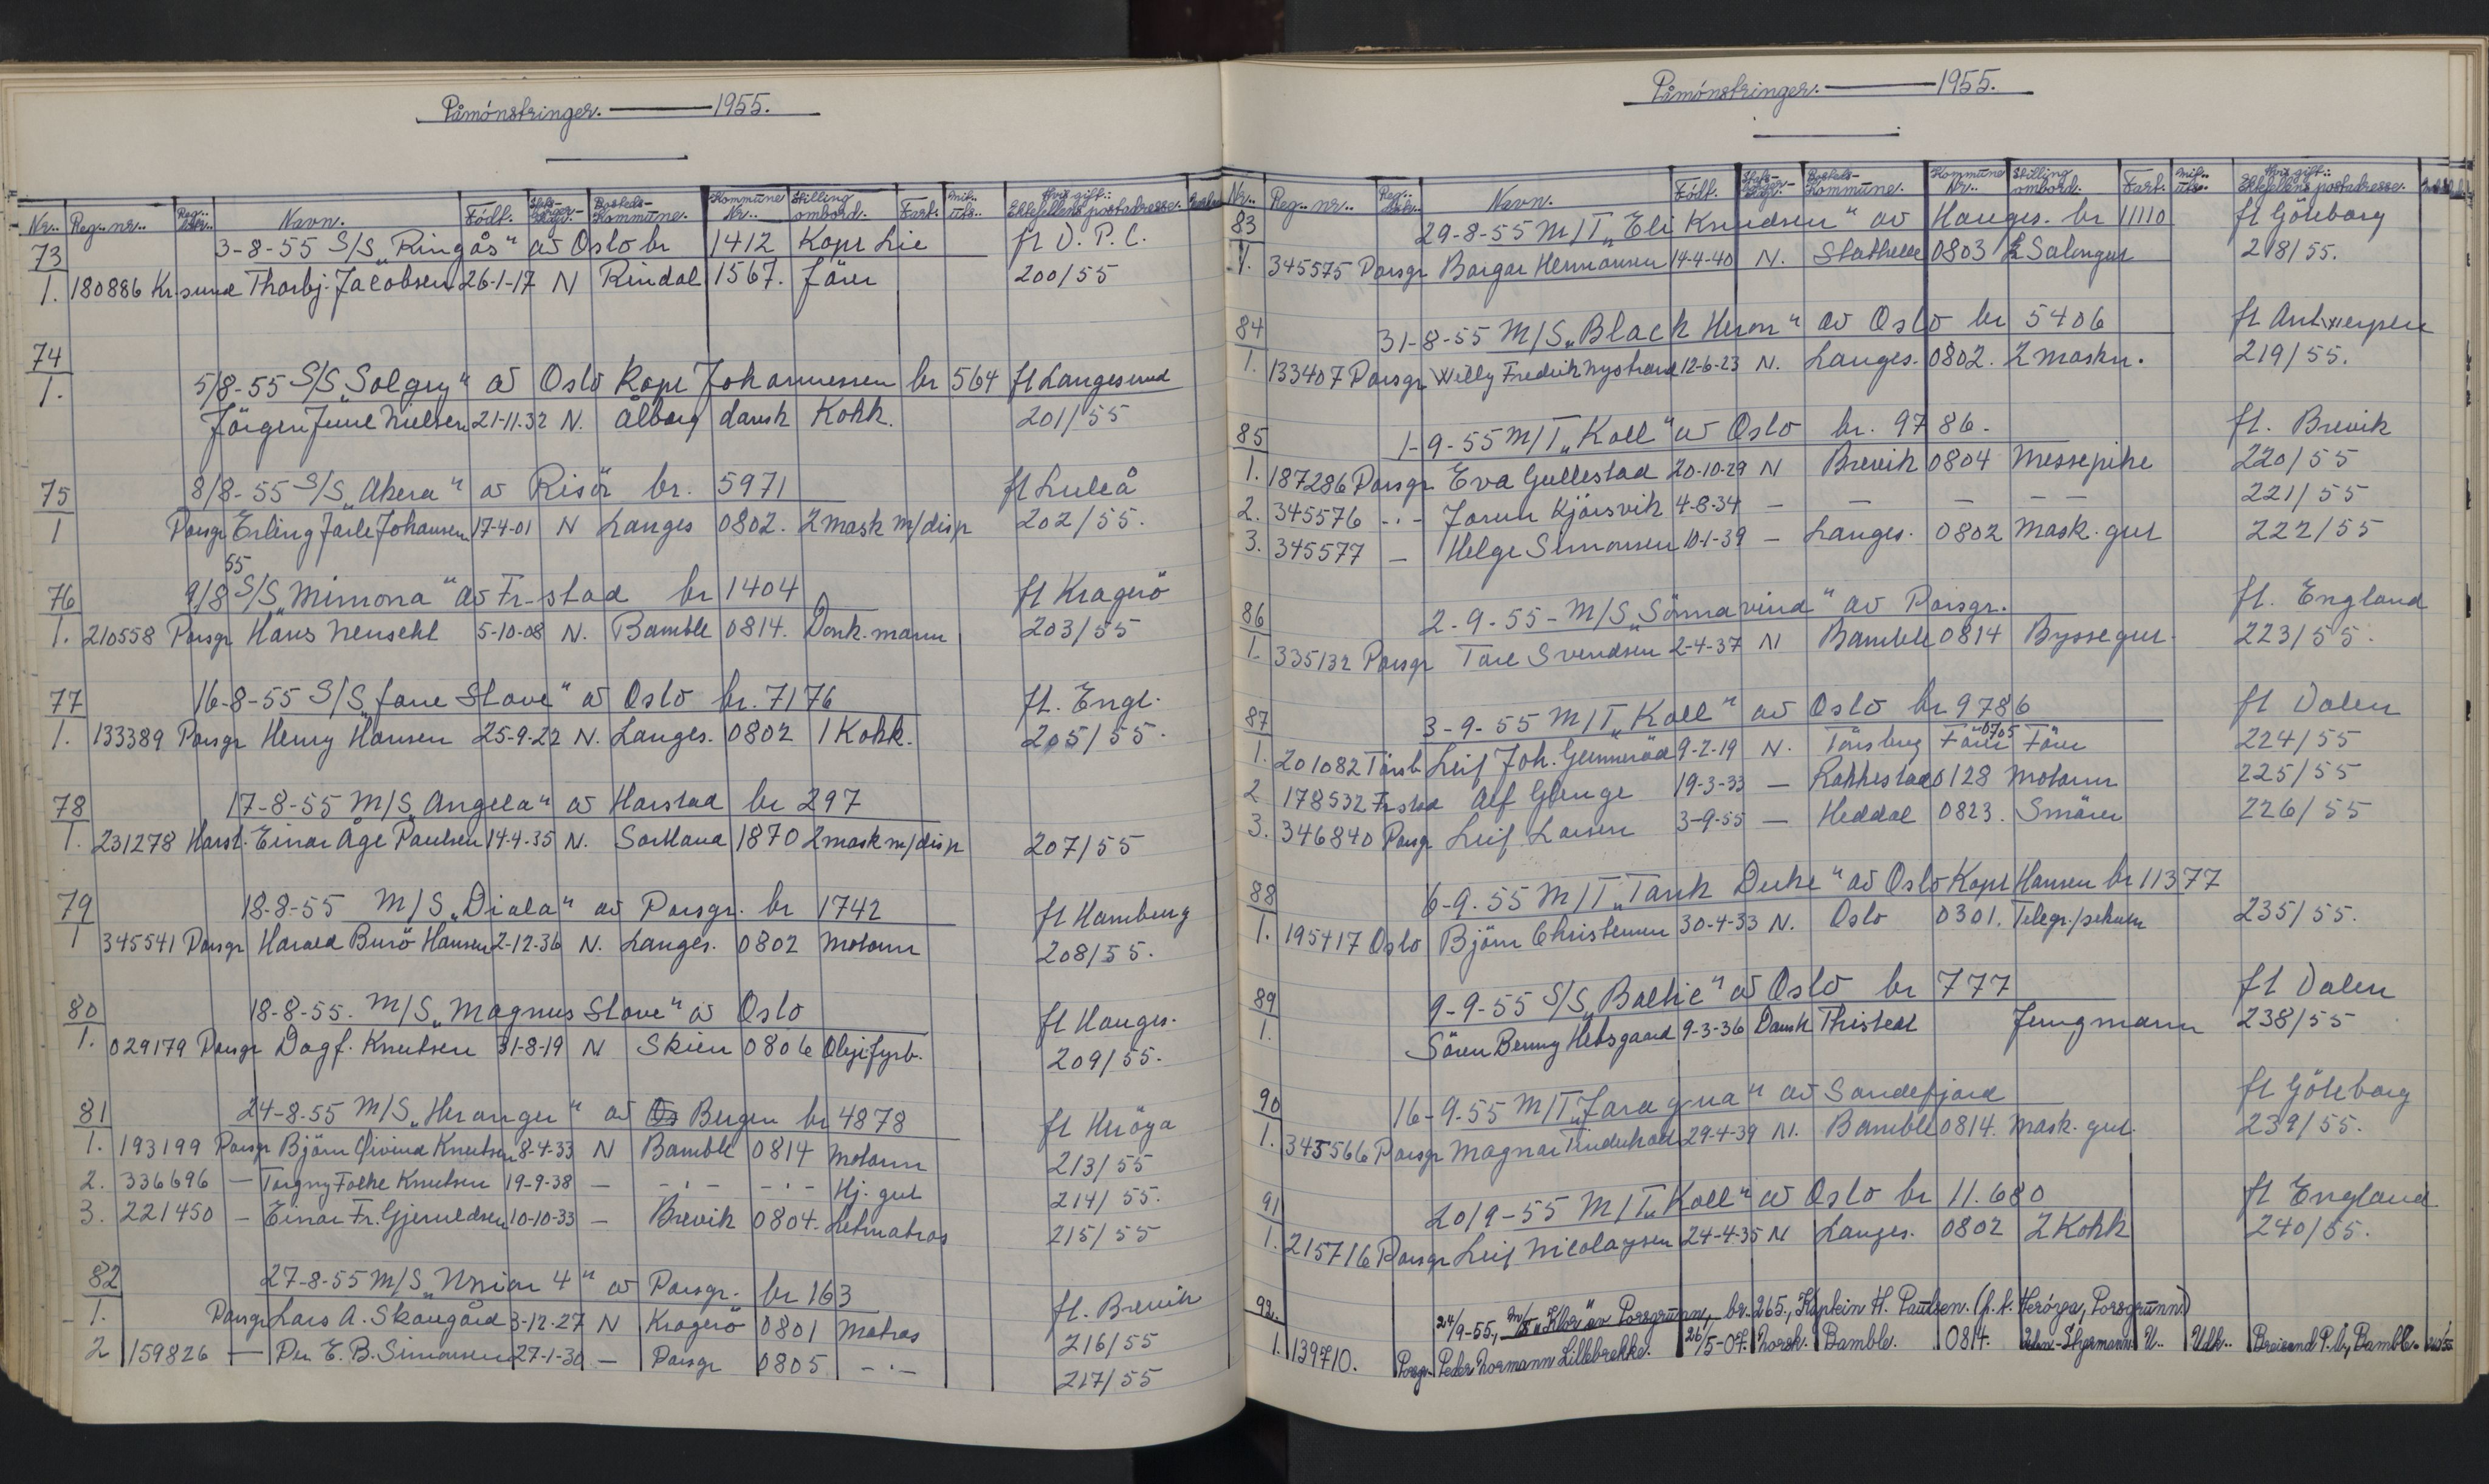 Påmónstringer. 1955.
Nr.. Reg.. nr.. Navn. Født. Bostets-Kommüne. Kommüne Nr.. Stilling ombord. Fart. Hvis gift: Ektefellens postadresse.
73 3-8-55 S/S „Ringås" av Oslo br 1412 Kapt Lie ft V. P. C.
1. 180886 Kr.sund Thorbj. Jacobsen 26-1-17 N Rindal 1567. förer 200/55
74 5/8-55 S/S „Solgry" av Oslo Kapt Johannessen br 564 ft Langesund
1. Jörgen Juul Nielsen 21-11-32 N. Ålborg dansk Kokk. 201/55
75 8/8-55 S/S „Akera" av Risör br. 5971 ft Luleå
1 Porsgr Erling Jarle Johansen 17-4-01 N Langes 0802. 2 mask m/disp 202/55.
76 9/8 55 S/S „Mimona" av Fr-stad br 1404 ft Kragerö
1. 210558 Porsgr Hans Neusehl 5-10-08 N. Bamble 0814. Donk.mann 203/55
77 16-8-55 S/S „Jane Stove" av Oslo br. 7176 ft. Engl.
1. 133389 Porsgr Henry Hansen 25-9-22 N. Langes. 0802 1 Kokk. 205/55.
78 17-8-55 M/S „Angela" av Harstad br 297
1. 231278 Harst. Einar Åge Paulsen 14-4-35 N. Sortland 1870 2 mask m/disp 207/55
79 18-8-55 M/S „Diala" av Porsgr. br 1742 ft Hamburg
1 345541 Porsgr Harald Burö Hansen 2-12-36 N. Langes. 0802 Motorm 208/55.
80 18-8-55. M/S „Magnus Stove" av Oslo ft Hauges.
1. 029179 Porsgr Dagf. Knutsen 31-8-19 N Skien 0806 Oljefyrb. 209/55.
81 24-8-55 M/S „Heranger" av Bergen br 4878 ft Heröya
1. 193199 Porsgr Björn Öivind Knutsen 8-4-33 N Bamble 0814 Motorm 213/55
2. 336696 — Torgny Folke Knutsen 19-9-38 — -·- -·- Hj. gut 214/55.
3. 221450 — Einar Fr. Gjeruldsen 10-10-33 — Brevik 0804. Letmatros 215/55
82 27-8-55 M/S „Union 4" av Porsgr. br 163 ft. Brevik
1. Porsgr Lars A. Skaugård 3-12-27 N Kragerö 0801 Matros 216/55
2 159826 — Per E. B. Simonsen 27-1-30 — Porsgr 0805 -·- 217/55
Påmónstringer. 1955.
Nr.. Reg.. nr.. Navn. Født. Bostets-Kommüne. Kommüne Nr.. Stilling ombord. Fart. Hvis gift: Ektefellens postadresse.
83 29-8-55 M/T „Eli Knudsen" av Hauges. br 11110 ft Göteborg
1. 345575 Porsgr Borgar Hermansen 14-4-40 N. Stathelle 0803 Salongut 218/55.
84 31-8-55 M/S „Black Heron" av Oslo br 5406 ft Antwerpen
1. 133407 Porsgr Willy Fredrik Nystrand 12-6-23 N. Langes. 0802. 2 maskn. 219/55.
85 1-9-55 M/T „Koll" av Oslo br. 9786. ft. Brevik
1. 187286 Porsgr Eva Gullestad 20-10-29 N Brevik 0804 Messepike 220/55
2. 345576 -·- Jorun Kjörsvik 4-8-34 — — — — — 221/55
3. 345577 — Helge Simonsen 10-1-39 — Langes. 0802 Mask. gut 222/55
86 2-9-55- M/S „Sönnavind" av Porsgr. ft. England
1. 335132 Porsgr Tore Svendsen 2-4-37 N Bamble 0814 Byssegut. 223/55.
87 3-9-55 M/T „Koll" av Oslo br 9786 ft Dalen
1. 201082 Törsb. Leif Joh. Gunneröd 9-2-19 N. Tönsberg 0705 Förer 224/55
2 178532 Fr.stad Alf Glenge 19-3-33 — Rakkestad 0128 Motorm 225/55
3. 346840 Porsg Leif Larsen 3-9-55 — Heddal 0823. Smörer 226/55
88 6-9-55 M/T „Tank Duke" av Oslo Kapt Hansen br 11377
1. 195417 Oslo Björn Christensen 30-4-33 N. Oslo 0301. 235/55.
89 9-9-55 S/S „Baltic" av Oslo br 777 ft Dalen
1. Sören Benny Hebsgaard 9-3-36 Dansk Thisted Jungmann 238/55
90 16-9-55 M/T „Jaragua" av Sandefjord ft Göteborg
1. 345566 Porsgr Magnar Tindehold 29-4-39 N. Bamble 0814. Mask. gut. 239/55.
91 20/9-55 M/T „Koll" av Oslo br 11.680 ft England
1. 215716 Porsgr Leif Nicolaysen 24-4-35 N Langes. 0802 2 Kokk 240/55.
92. 24/9-55, M/S „Klar" av Porsgrünn, br. 265, Kaptein H. Paulsen. (f. t. Herøya, Porsgrünn)
1. 139710. Porsgr. Peder Normann Lillebrekke. 26/5-07. Norsk. Bamble. 0814. U.. Udk.. Breisand P. å, Bamble.